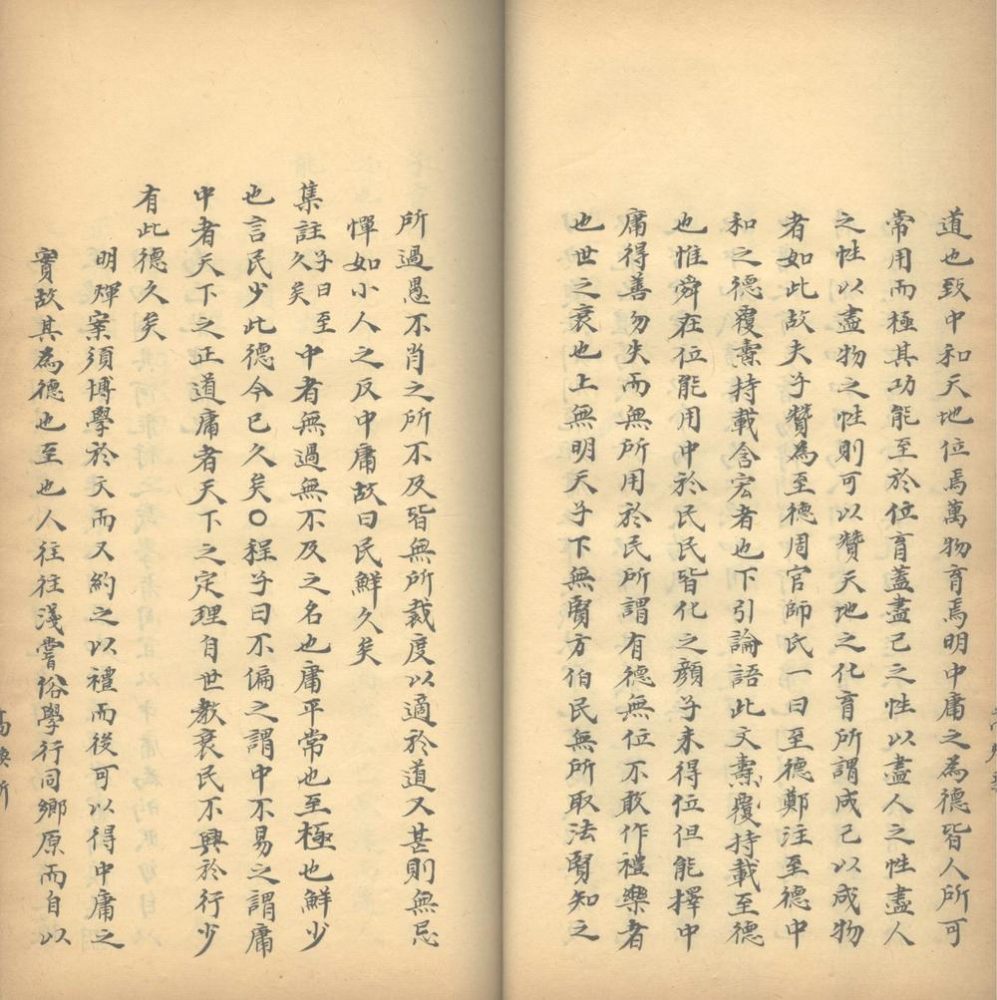 道也致中和天地位焉萬物育焉明中庸之為德皆人所可
常用而極其功能至於位育蓋盡己之性以盡人之性盡人
之性以盡物之性則可以贊天地之化育所謂成己以成物
者如此故夫子贊為至德周官師氏一曰至德鄭注至德中
和之德覆燾持載含宏者也下引論語此文燾覆持載至德
也惟舜在位能用中於民民皆化之顏子未得位但能擇中
庸得善勿失而無所用於民所謂有德無位不敢作禮樂者
也世之衰也上無明天子下無賢方伯民無所取法賢知之
所過愚不肖之所不及皆無所裁度以適於道又甚則無忌
憚如小人之反中庸故曰民鮮久矣
集註子曰至久矣中者無過無不及之名也庸平常也至極也鮮少
也言民少此德今已久矣○程子曰不偏之謂中不易之謂庸
中者天下之正道庸者天下之定理自世教衰民不興於行少
有此德久矣
明煇案須博學於文而又約之以禮而後可以得中庸之
實故其為德也至也人往往淺嘗俗學行同鄉原而自以